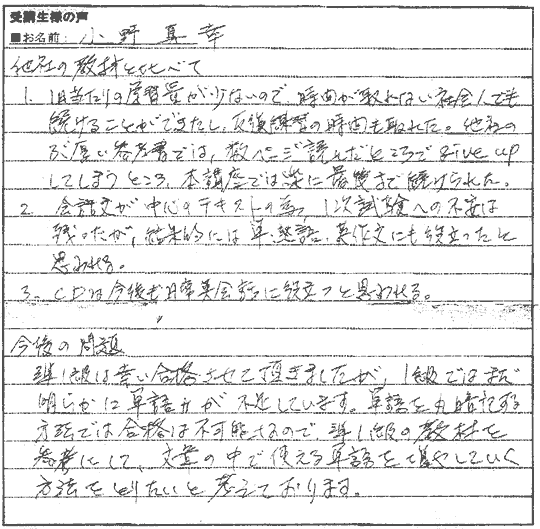 受講生様の声
■お名前: 小野 真幸
他社の教材と比べて
1. 1日当たりの学習量が少ないので、時間が取れない社会人でも
続けることができたし、反復練習の時間も取れた。他社の
ぶ厚い参考書では、数ページ読んだところで give up
してしまうところ、本講座では楽に最後まで続けられた。
2. 会話文が中心のテキストの為、1次試験への不安は
残ったが、結果的には単、熟語、英作文にも役立ったと
思われる。
3. CDは今後も日常英会話に役立つと思われる。
今後の問題
準1級は幸い合格させて頂きましたが、1級ではまだ
明らかに単語力が不足しています。単語を丸暗記する
方法では合格は不可能なので、準1級の教材を
参考にして、文章の中で使える単語を増やしていく
方法をとりたいと考えております。